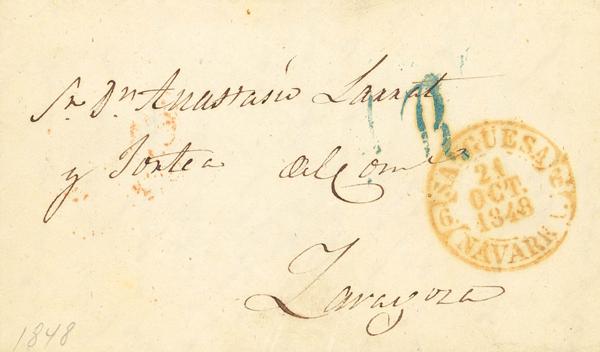 Sr. Dn. Anastasio Larrat
y Jontea del Com
Zaragoza
SANGUESA
21
OCT.
1848
NAVARR
1848